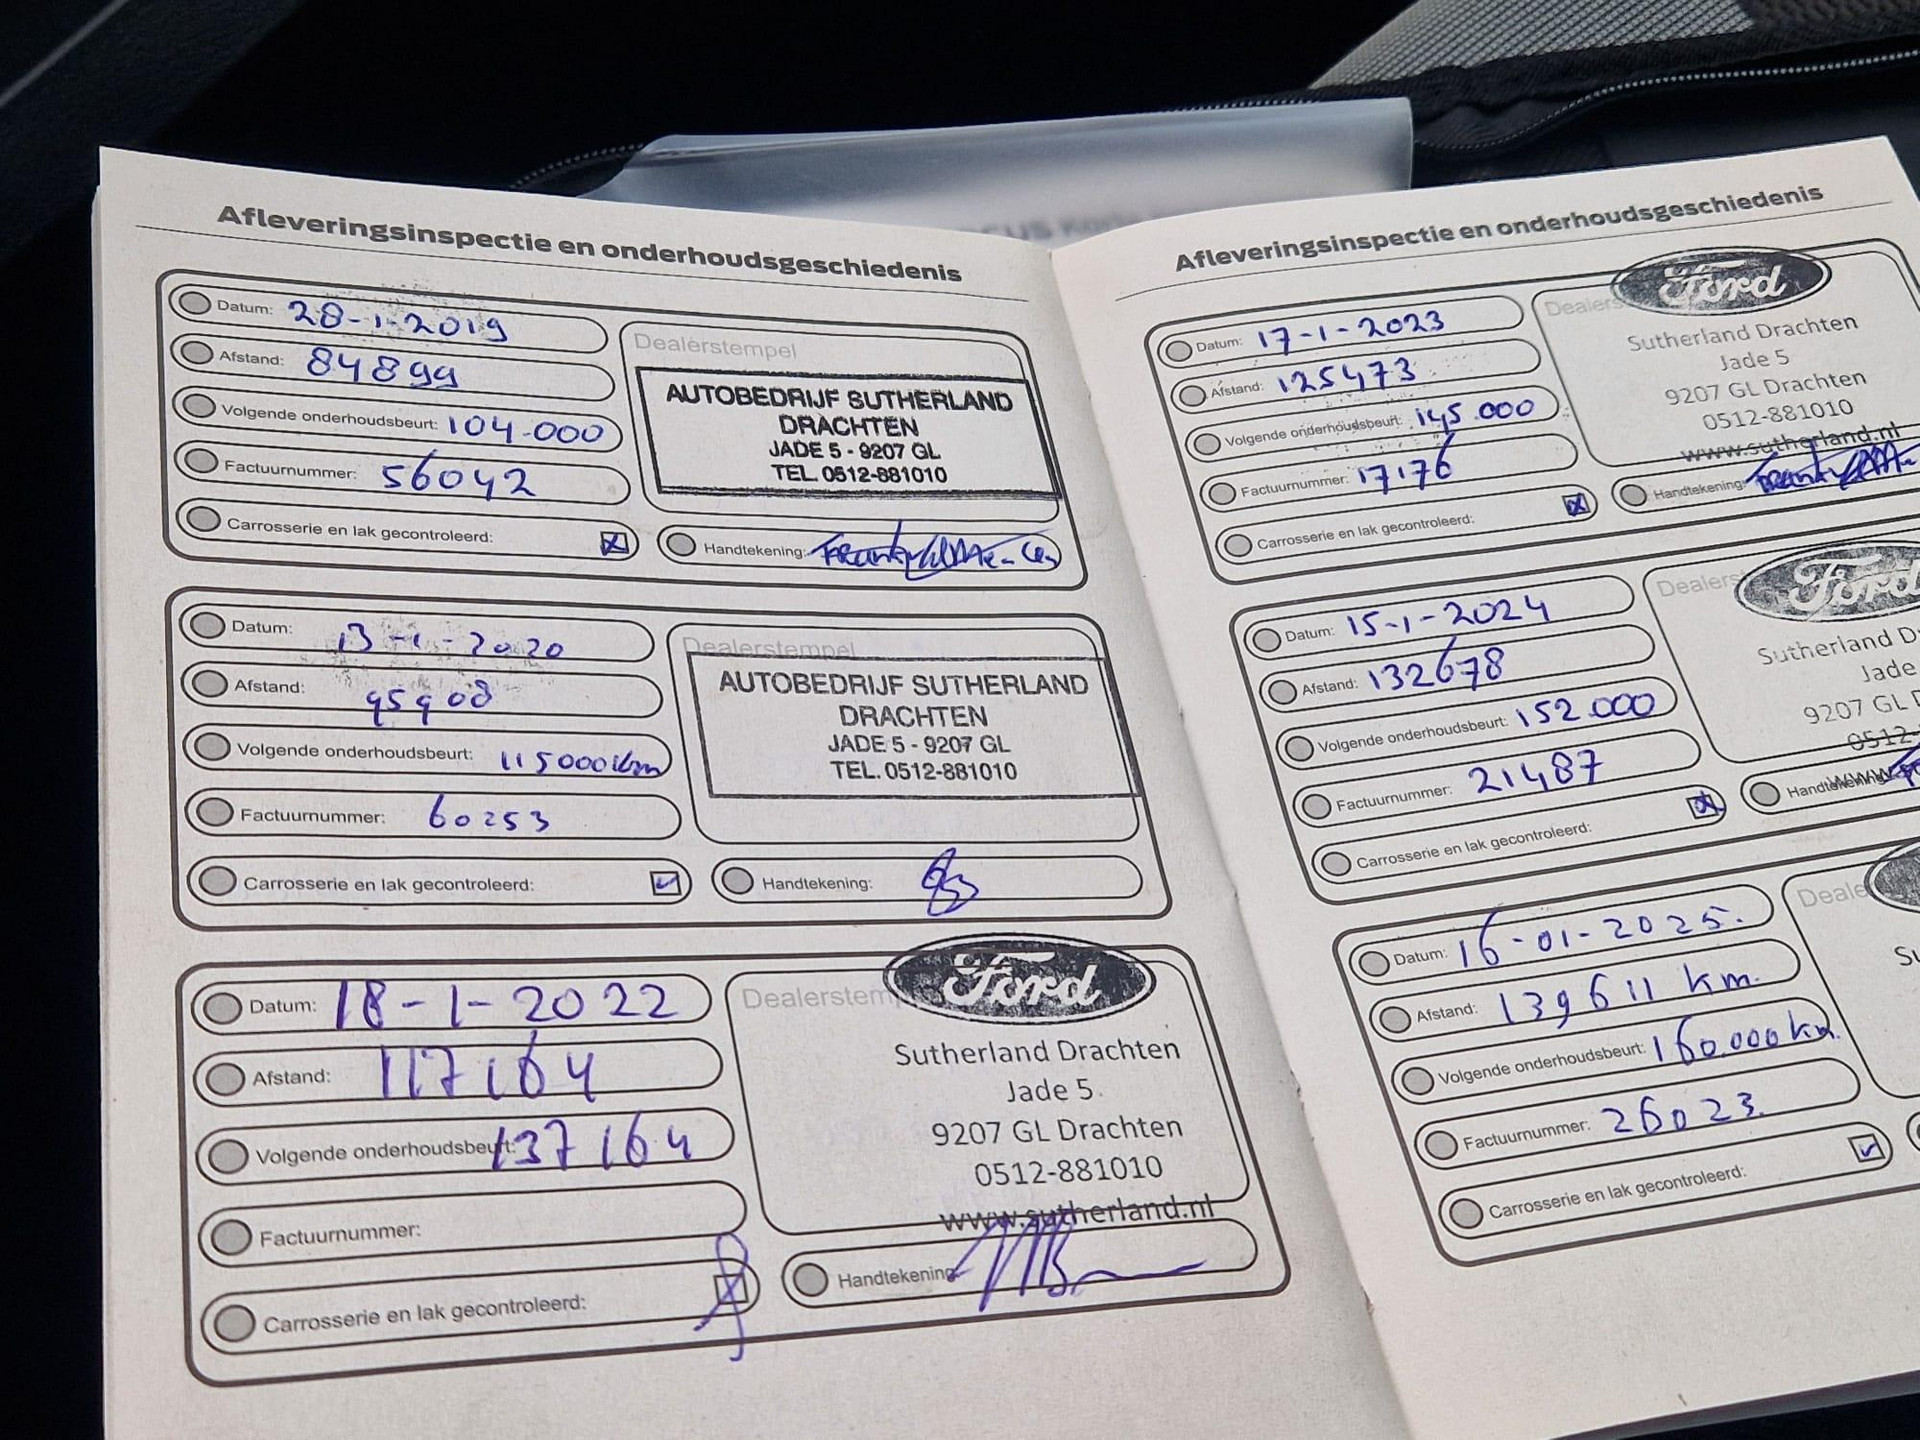 Afleveringsinspectie en onderhoudsgeschiedenis
Datum: 28-1-2019
Afstand: 84899
Volgende onderhoudsbeurt: 104.000
Factuurnummer: 56042
Carrosserie en lak gecontroleerd:
Dealerstempel
AUTOBEDRIJF SUTHERLAND
DRACHTEN
JADE 5 - 9207 GL
TEL. 0512-881010
Handtekening:
Datum: 13-1-2020
Afstand: 95908
Volgende onderhoudsbeurt: 115000 km
Factuurnummer: 60253
Carrosserie en lak gecontroleerd:
Dealerstempel
AUTOBEDRIJF SUTHERLAND
DRACHTEN
JADE 5 - 9207 GL
TEL. 0512-881010
Handtekening:
Datum: 18-1-2022
Afstand: 117164
Volgende onderhoudsbeurt: 137164
Factuurnummer:
Carrosserie en lak gecontroleerd:
Dealerstem
Ford
Sutherland Drachten
Jade 5
9207 GL Drachten
0512-881010
www.sutherland.nl
Handtekening:
Afleveringsinspectie en onderhoudsgeschiedenis
Datum: 17-1-2023
Afstand: 125473
Volgende onderhoudsbeurt: 145.000
Factuurnummer: 17176
Carrosserie en lak gecontroleerd:
Dealers
Ford
Sutherland Drachten
Jade 5
9207 GL Drachten
0512-881010
www.sutherland.nl
Handtekening:
Datum: 15-1-2024
Afstand: 132678
Volgende onderhoudsbeurt: 152.000
Factuurnummer: 21487
Carrosserie en lak gecontroleerd:
Dealers
Ford
Sutherland D
Jade
9207 GL D
0512-
www.
Handtekening:
Datum: 16-01-2025.
Afstand: 139611 km.
Volgende onderhoudsbeurt: 160.000 km.
Factuurnummer: 26023.
Carrosserie en lak gecontroleerd:
Deale
Su